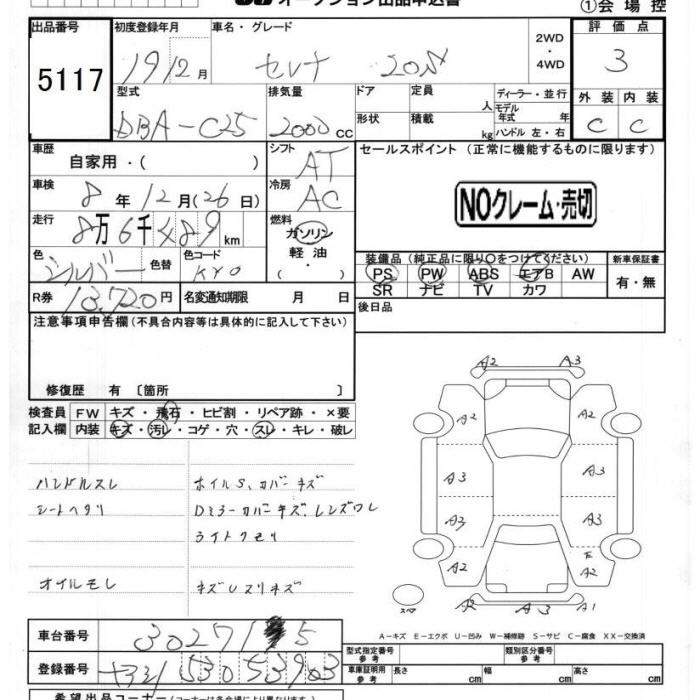 オークション出品申込書
①会 場 控
出品番号
5117
初度登録年月
19 12月
車名・グレード
セレナ 20S
2WD
・
4WD
評 価 点
3
外 装 内 装
C C
型式
DBA-C25
排気量
2000 CC
ドア
形状
定員
人
積載
kg
ディーラー・並行
モデル
年式 年
ハンドル 左・右
車歴
自家用・( )
シフト
AT
車検
8 年 12 月 (26 日)
冷房
AC
走行
8万 6千 489 km
燃料
ガソリン
軽 油
・
色
シルバー
色替
色コード
KY0
R券
13,720円
名変通知期限 月 日
セールスポイント (正常に機能するものに限ります)
NOクレーム・売切
装備品 (純正品に限り○をつけてください)
PS PW ABS エアB AW
SR ナビ TV カワ
新車保証書
有・無
後日品
注意事項申告欄(不具合内容等は具体的に記入して下さい)
修復歴 有 〔箇所 〕
検査員
記入欄
FW キズ・飛石・ヒビ割・リペア跡・×要
内装 キズ・汚レ・コゲ・穴・スレ・キレ・破レ
ハンドルスレ
シートヘタリ
オイルモレ
ホイルS、カバーキズ
Dミラーカバーキズ、レンズワレ
ライトクモリ
キズUスリキズ
A2 A3
A2 A2
A3 A3
A3 A3
E
A2 A2
A2 A2 A1
スペア
A-キズ E-エクボ U-凹み W-補修跡 S-サビ C-腐食 XX-交換済
車台番号
302715
登録番号
530 5303
型式指定番号
参 考
類別区分番号
参 考
車庫証明用
参 考
長さ cm
幅 cm
高さ cm
希望出品コーナー(コーナーは各会場により異なります。)